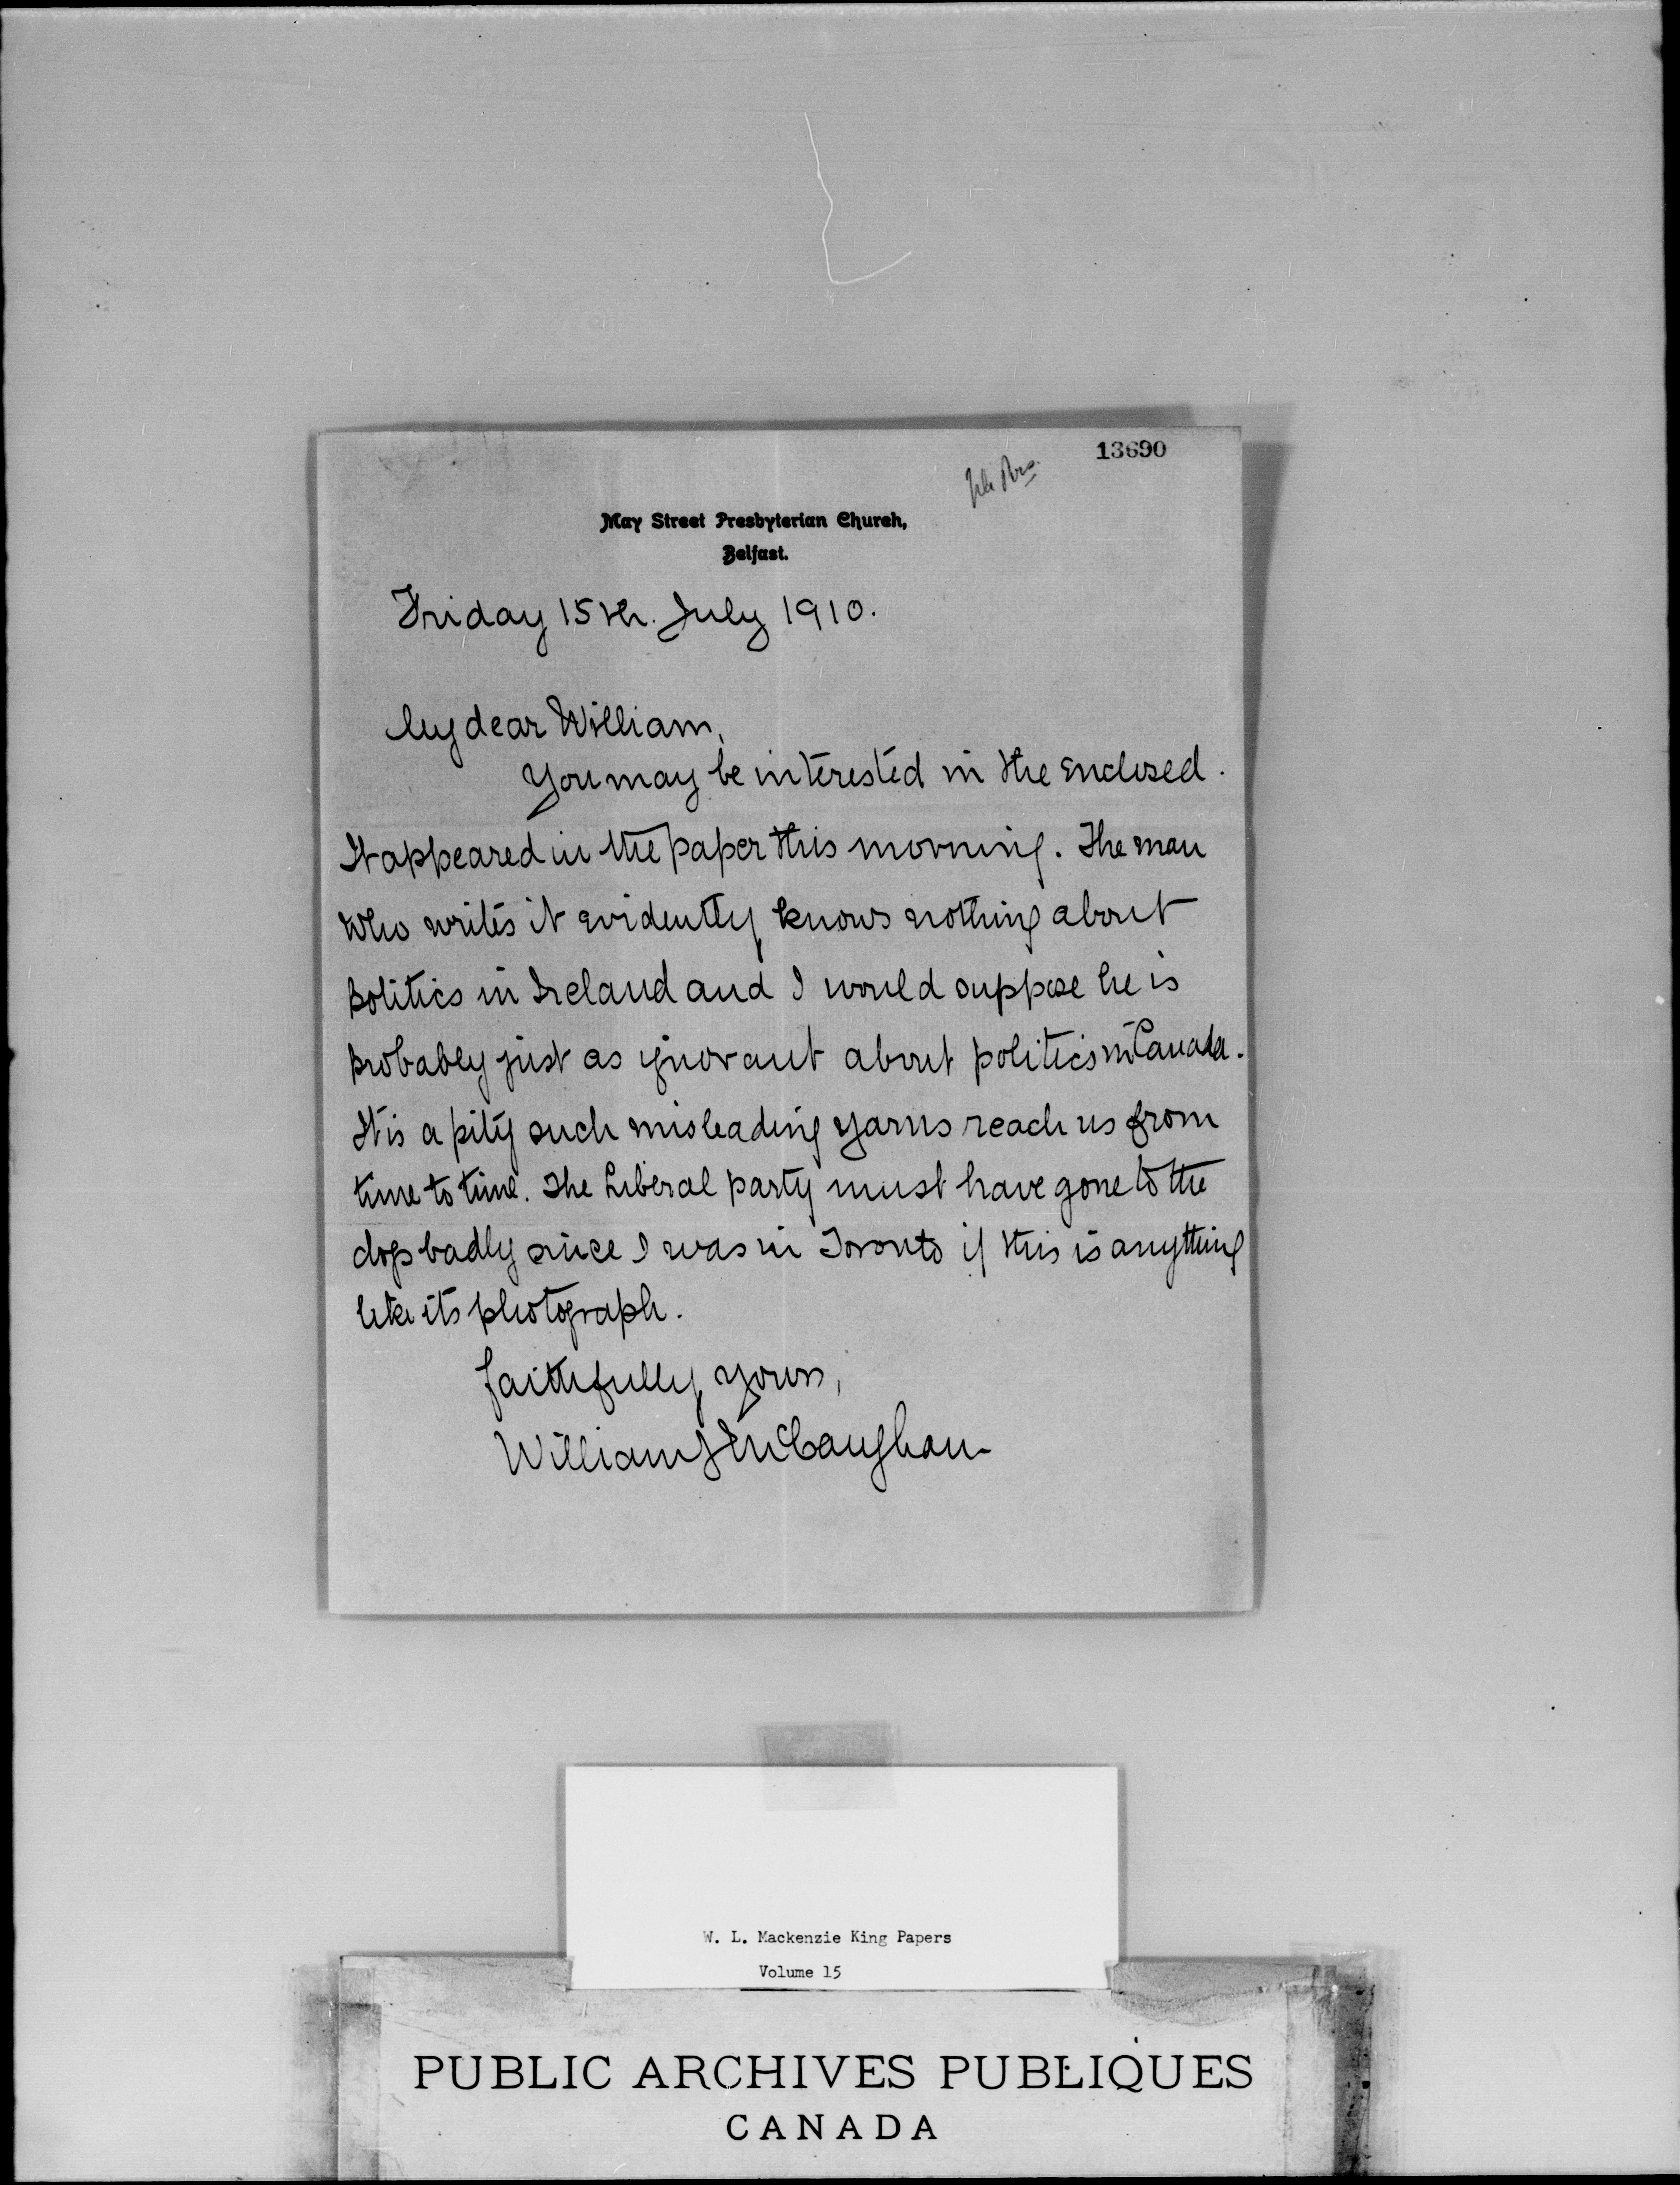 13690
May Street Presbyterian Church,
Belfast.
Friday 15th. July 1910.
My dear William,
You may be interested in the enclosed.
It appeared in the paper this morning. The man
who writes it evidently knows nothing about
politics in Ireland and I would suppose he is
probably just as ignorant about politics in Canada.
It is a pity such misleading yarns reach us from
time to time. The Liberal party must have gone to the
dogs badly since I was in Toronto if this is anything
like its photograph.
Faithfully yours,
William J McCaughan
W. L. Mackenzie King Papers
Volume 15
PUBLIC ARCHIVES PUBLIQUES
CANADA